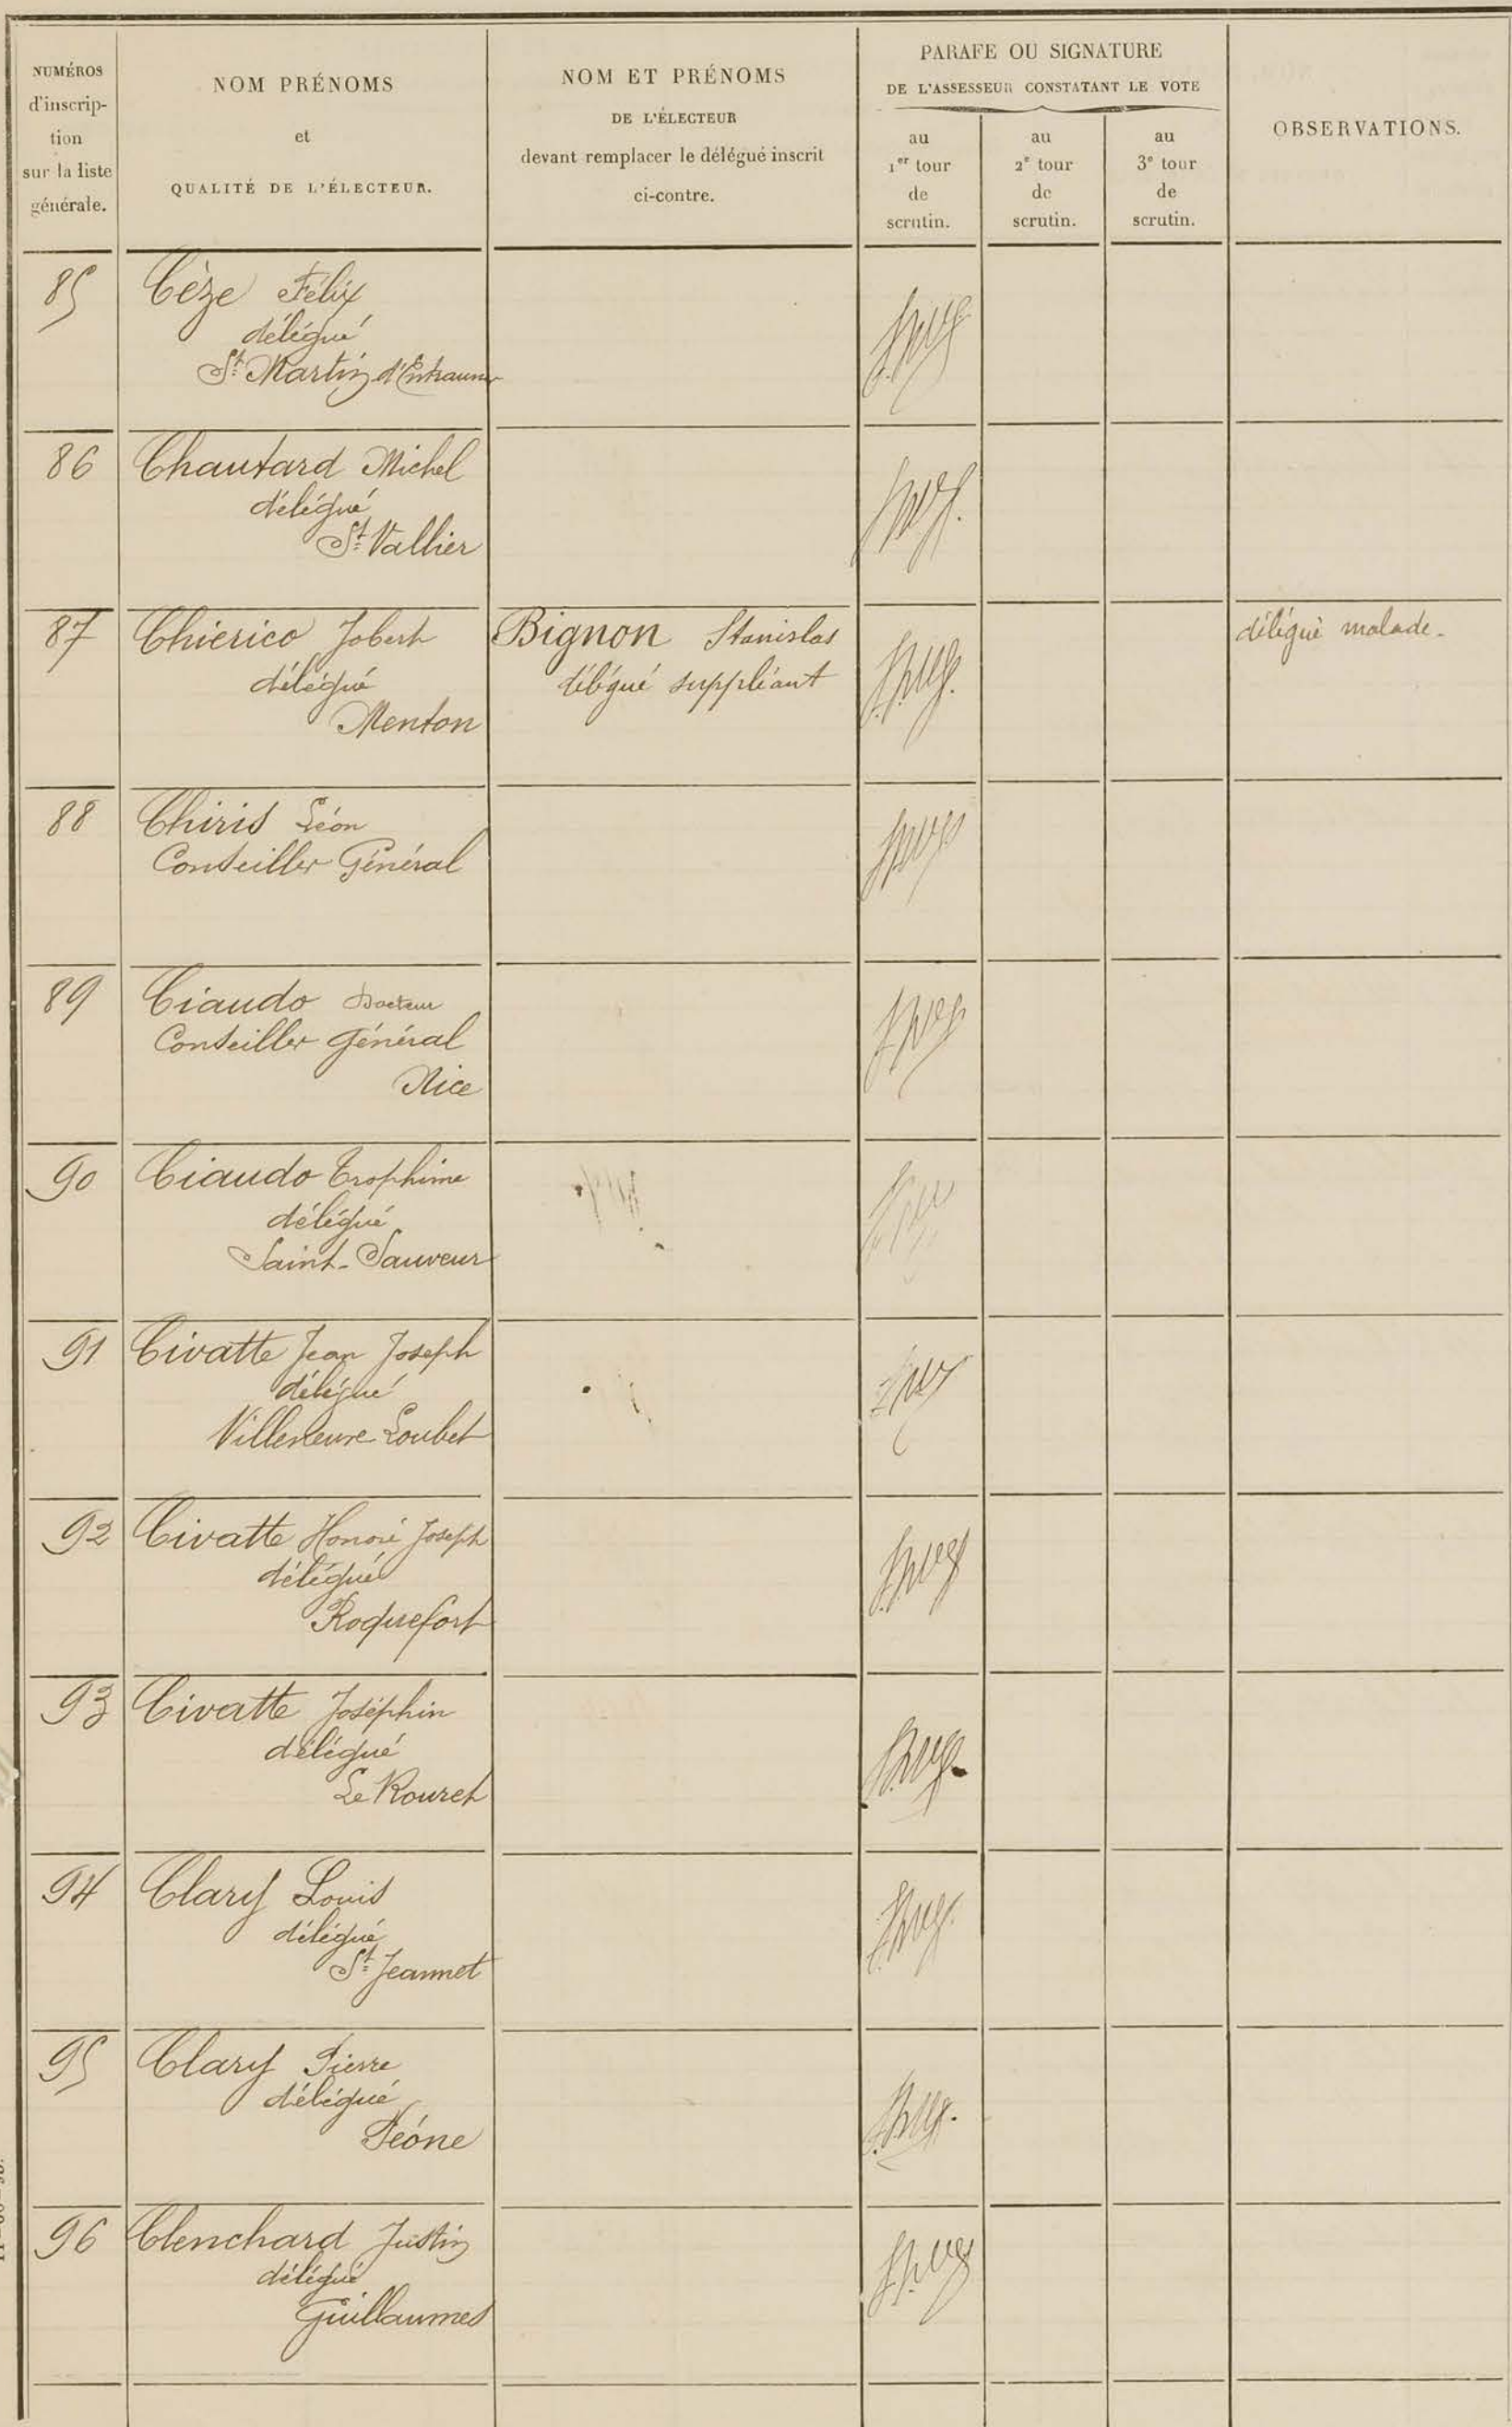 NUMÉROS
d'inscrip-
tion
sur la liste
générale.
NOM PRÉNOMS
et
QUALITÉ DE L'ÉLECTEUR.
NOM ET PRÉNOMS
DE L'ÉLECTEUR
devant remplacer le délégué inscrit
ci-contre.
PARAFE OU SIGNATURE
DE L'ASSESSEUR CONSTATANT LE VOTE
au
1er tour
de
scrutin.
au
2e tour
de
scrutin.
au
3e tour
de
scrutin.
OBSERVATIONS.
85 Cèze Félix
délégué
St Martin d'Entraunes
86 Chautard Michel
délégué
St Vallier
87 Chierico Jobert Bignon Stanislas délégué malade.
délégué délégué suppléant
Menton
88 Chiris Léon
Conseiller Général
89 Ciaudo Docteur
Conseiller Général
Nice
90 Ciaudo Trophime
délégué
Saint-Sauveur
91 Civatte Jean Joseph
délégué
Villeneuve Loubet
92 Civatte Honoré Joseph
délégué
Roquefort
93 Civatte Joséphin
délégué
Le Rouret
94 Clary Louis
délégué
St Jeannet
95 Clary Pierre
délégué
Péone
96 Clenchard Justin
délégué
Guillaumes